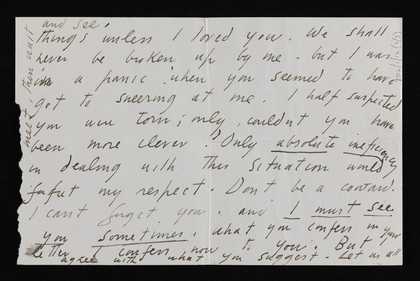 and see,
things unless I loved you. We shall
never be broken up by me. but I was
in a panic when you seemed to have
got to sneering at me. I half suspected
you were torn; only, couldn't you have
been more clever? Only absolute inefficiency
in dealing with this situation would
forfeit my respect. Don't be a coward.
I can't forget you. and I must see
you sometimes. what you confess in your
letter I confess, now to you. But
agree with what you suggest. Let us all
meet then wait